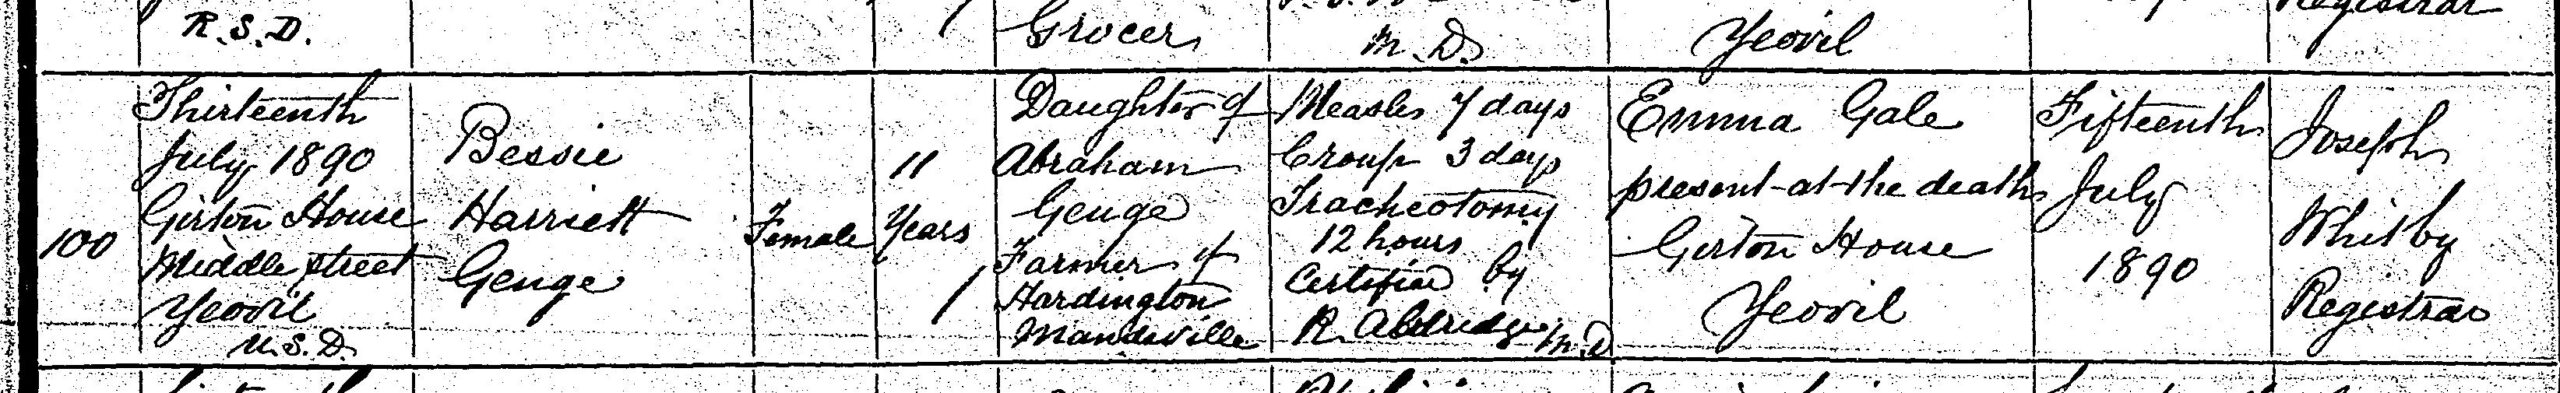 R.S.D.
Grocer
M.D.
Yeovil
Registrar
100
Thirteenth
July 1890
Girton House
Middle Street
Yeovil
U.S.D.
Bessie
Harriett
Genge
Female
11
Years
Daughter of
Abraham
Genge
Farmer of
Hardington
Mandeville
Measles 7 days
Croup 3 days
Tracheotomy
12 hours
Certified by
R. Aldridge M.D
Emma Gale
present at the death
Girton House
Yeovil
Fifteenth
July
1890
Joseph
Whitby
Registrar